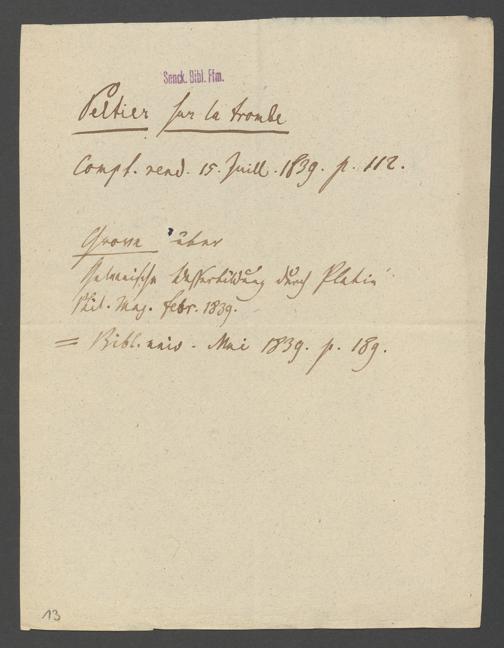 Senck. Bibl. Ffm.
Peltier sur la trombe
Compt. rend. 15. Juill. 1839. p. 112.
Grove über
galvanische Wasserbildung durch Platin
Phil. Mag. febr. 1839.
= Bibl. univ. Mai 1839. p. 189.
13